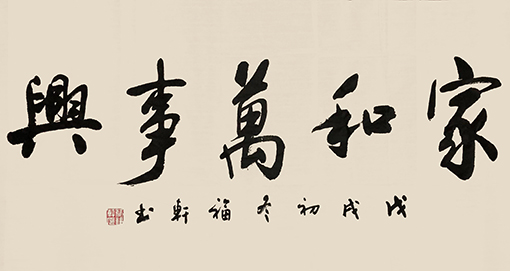 家和萬事興
戊戌初冬福軒书